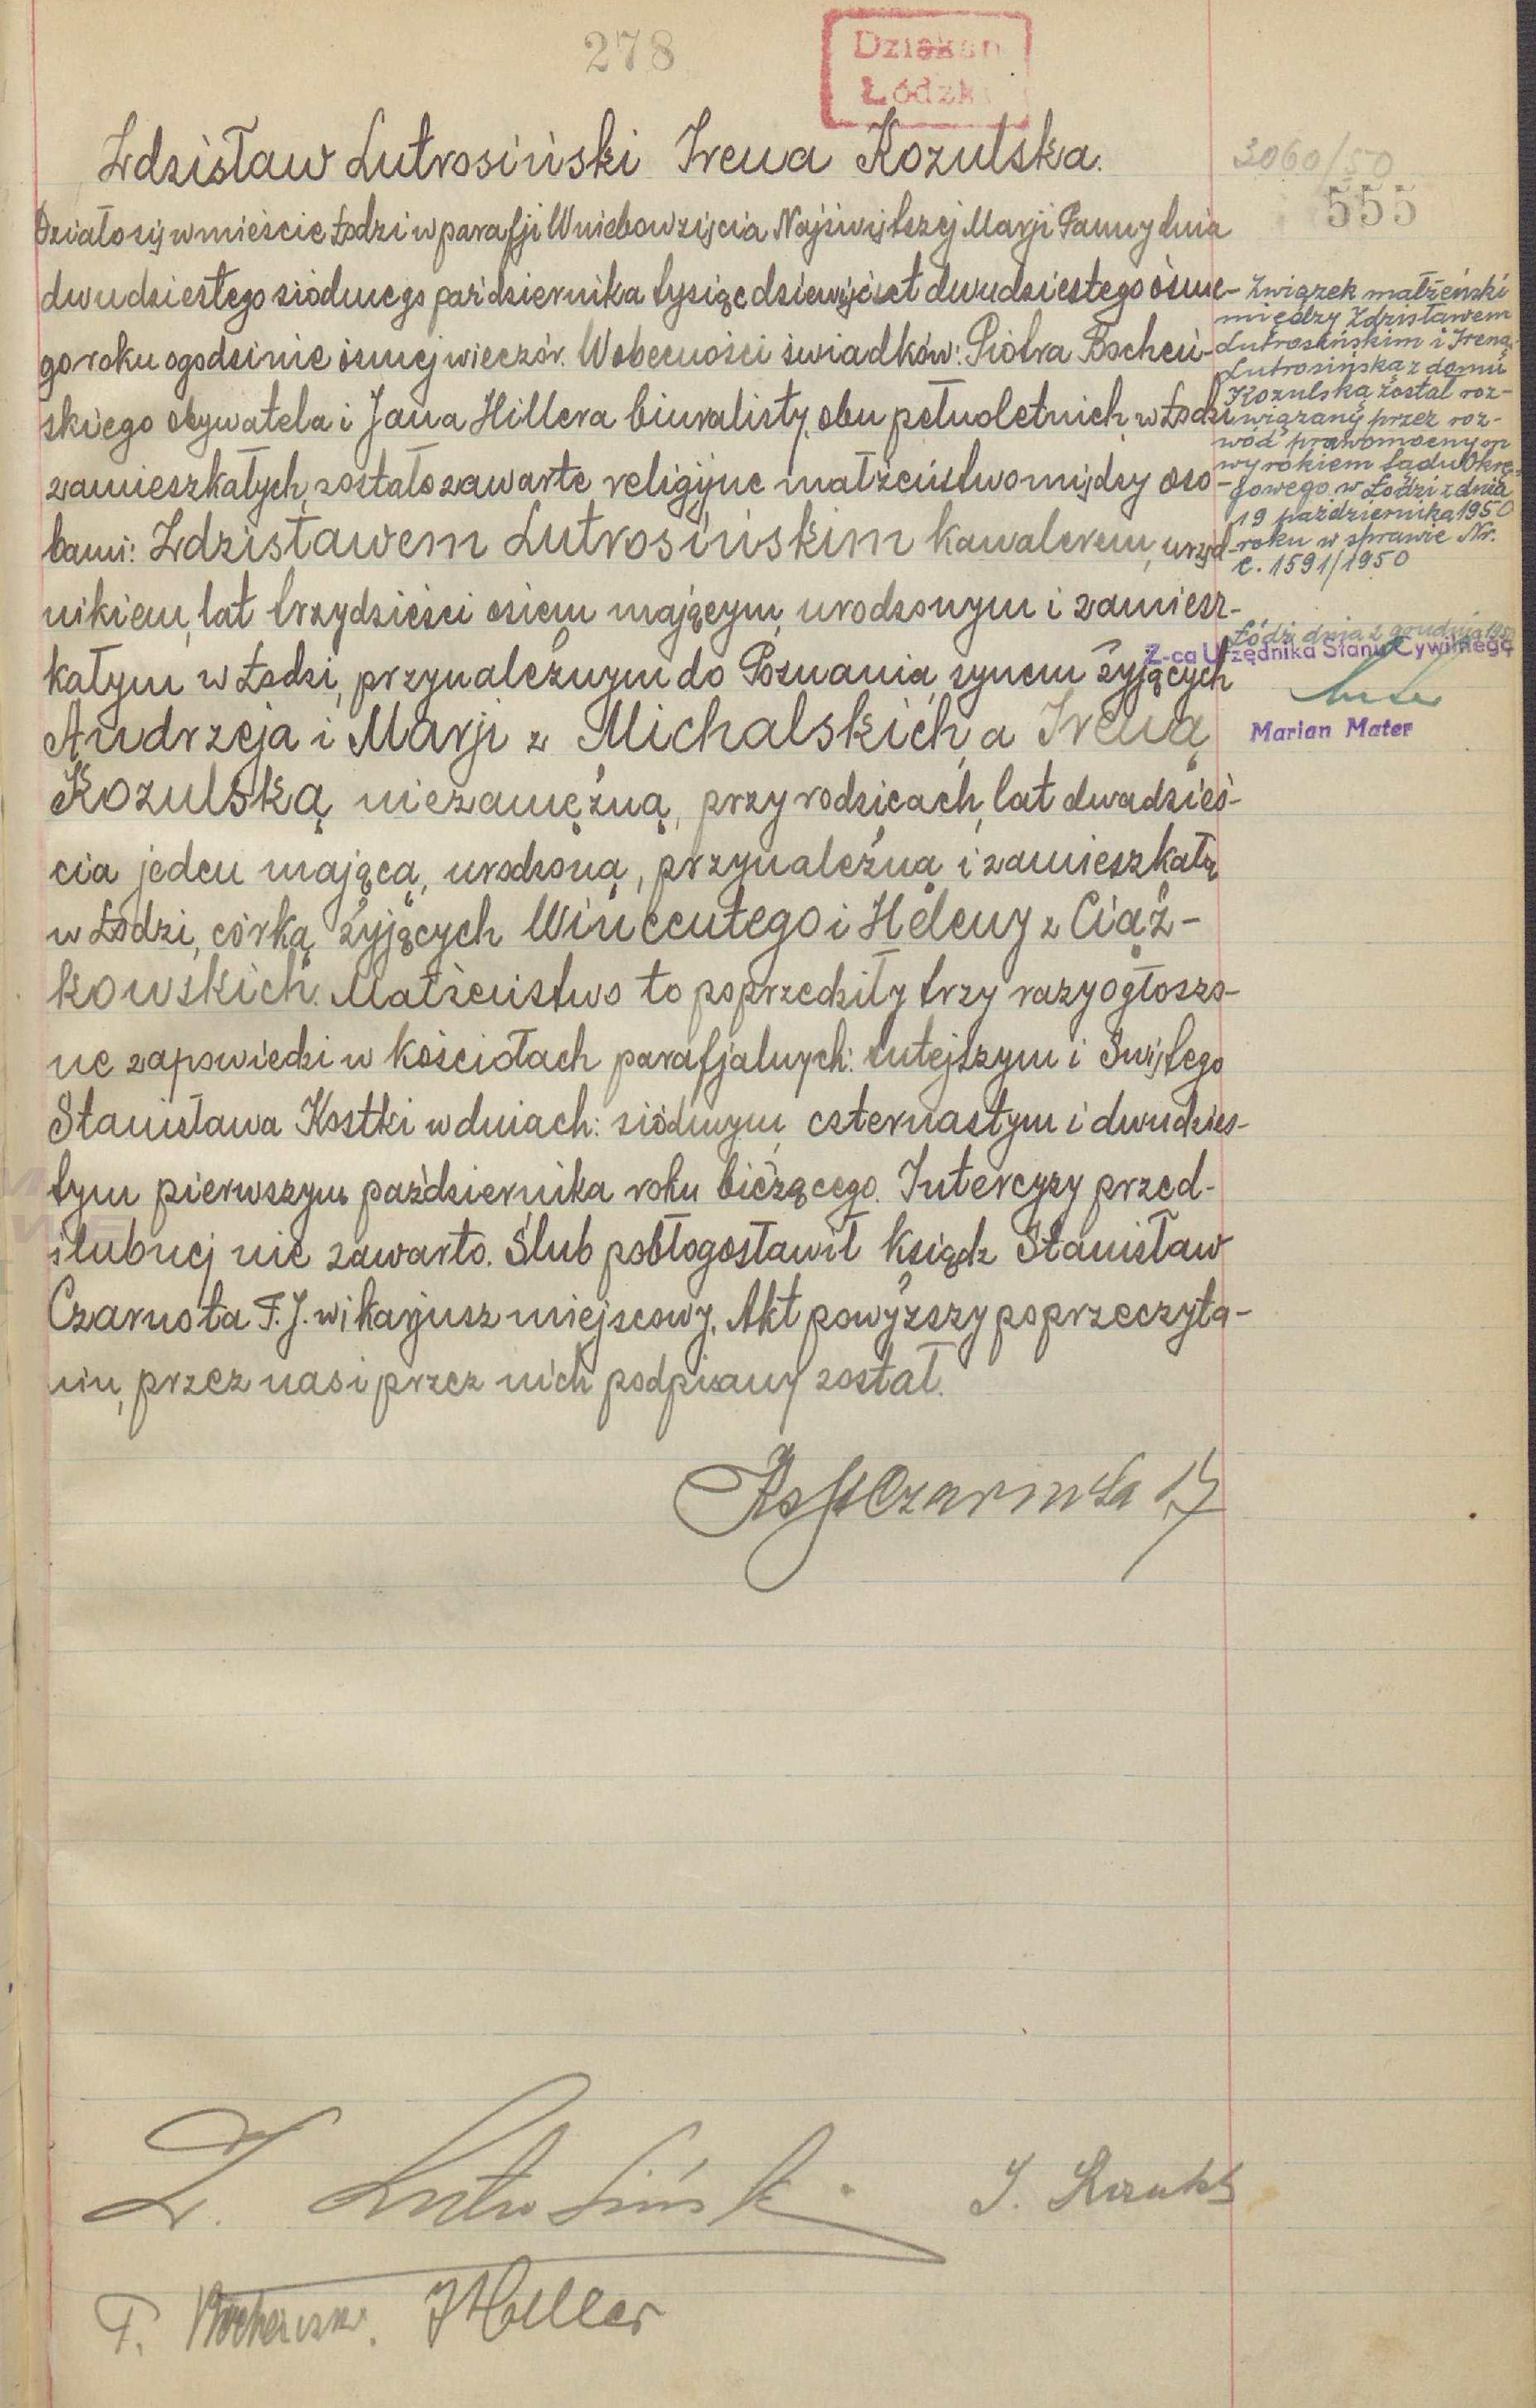 278
Dziekan
Łódzki
Zdzisław Lutrosiński Irena Kozulska.
3060/50
555
Działo się w mieście Łodzi w parafji Wniebowzięcia Najświętszej Marji Panny dnia
dwudziestego siódmego października tysiąc dziewięćset dwudziestego ósme-
go roku o godzinie ósmej wieczór. W obecności świadków: Piotra Bocheń-
skiego obywatela i Jana Hillera biuralisty, obu pełnoletnich, w Łodzi
zamieszkałych, zostało zawarte religijne małżeństwo między oso-
bami: Zdzisławem Lutrosińskim kawalerem, urzęd-
nikiem, lat trzydzieści osiem mającym, urodzonym i zamiesz-
kałym w Łodzi, przynależnym do Poznania, synem żyjących
Andrzeja i Marji z Michalskich, a Ireną
Kozulską niezamężną, przy rodzicach, lat dwadzieś-
cia jeden mającą, urodzoną, przynależną i zamieszkałą
w Łodzi, córką żyjących Wincentego i Heleny z Ciąż-
kowskich. Małżeństwo to poprzedziły trzy razy ogłoszo-
ne zapowiedzi w kościołach parafjalnych: tutejszym i Świętego
Stanisława Kostki w dniach: siódmym, czternastym i dwudzies-
tym pierwszym października roku bieżącego. Intercyzy przed-
ślubnej nie zawarto. Ślub pobłogosławił ksiądz Stanisław
Czarnota T.J. wikarjusz miejscowy. Akt powyższy po przeczyta-
niu, przez nas i przez nich podpisany został.
Związek małżeński
między Zdzisławem
Lutrosińskim i Ireną
Lutrosińską z domu
Kozulską został roz-
wiązany przez roz-
wód prawomocnym
wyrokiem Sądu Okrę-
gowego w Łodzi z dnia
19 października 1950
roku w sprawie Nr.
C. 1591/1950
Łódź dnia 2 grudnia 1950
Z-ca Urzędnika Stanu Cywilnego
Marian Mater
Ks St Czarnota TJ
Z. Lutrosiński
I. Kozulska
P. Bocheński. J Hiller